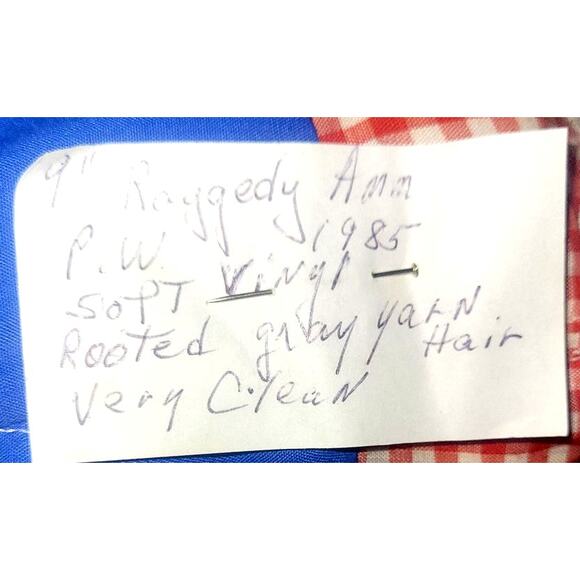 9" Raggedy Ann
P.W. 1985
SOFT Vinyl
Rooted gray yarn Hair
Very Clean